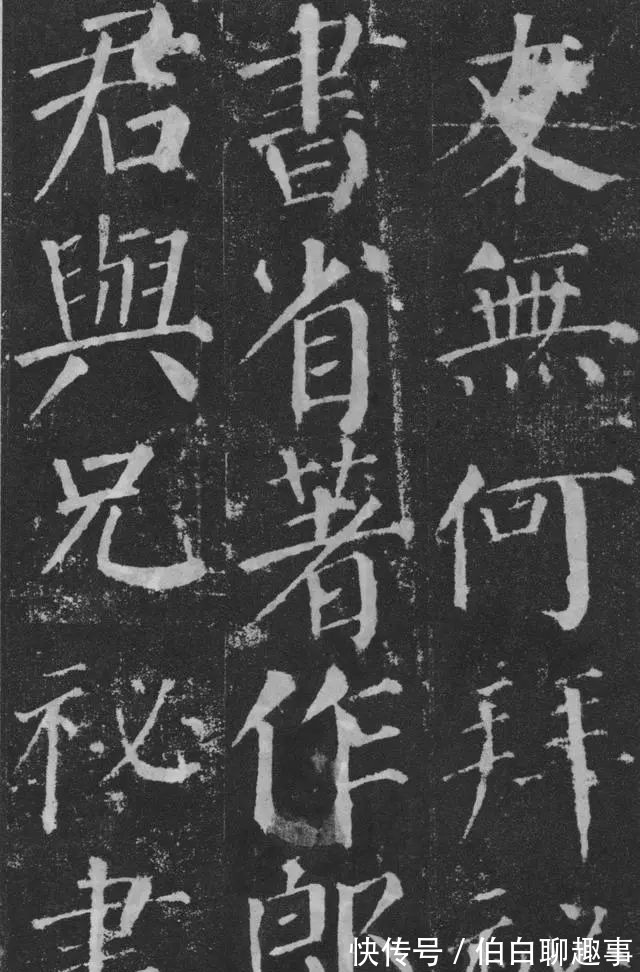 友無何拜祕
書省著作郎
君與兄祕書
快传号/伯白聊趣事